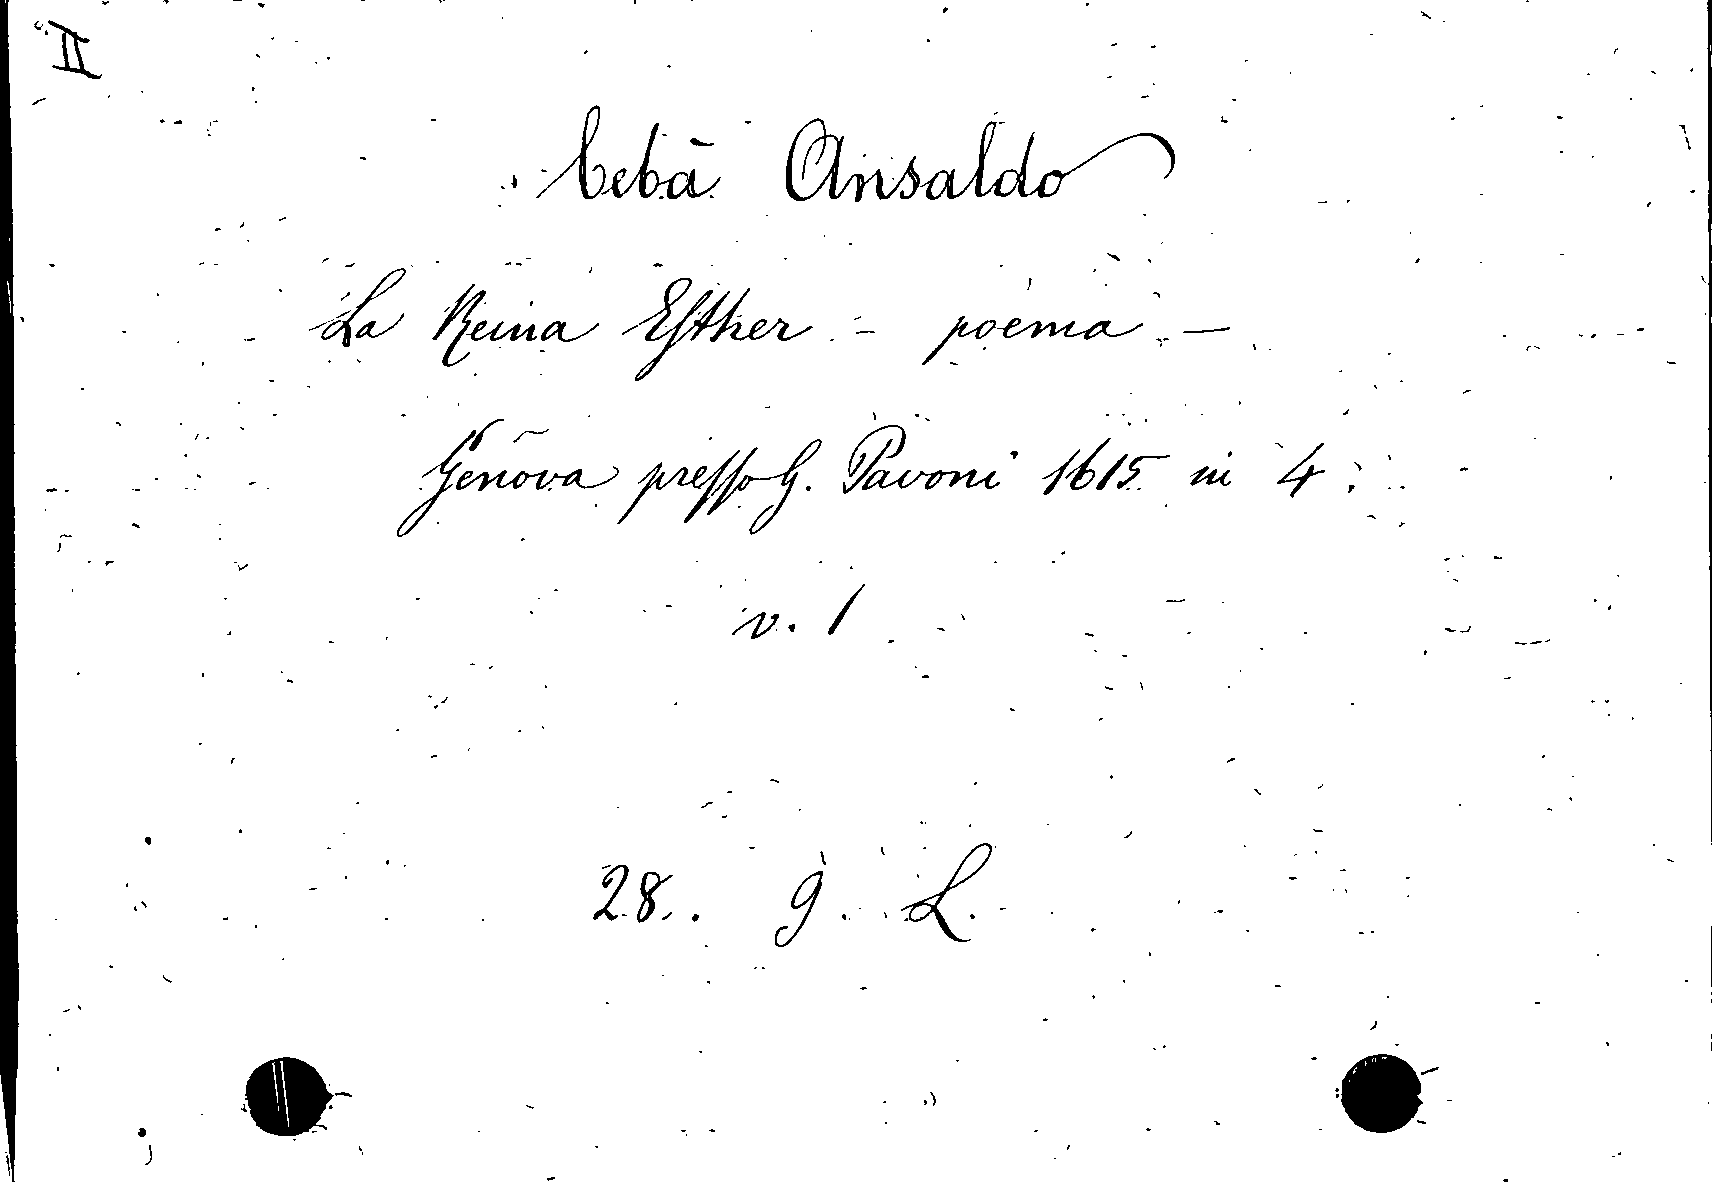 II
Cebà Ansaldo
La Reina Eſther - poema -
Genova preſſo G. Pavoni 1615 in 4
v. 1
28. 9. L.